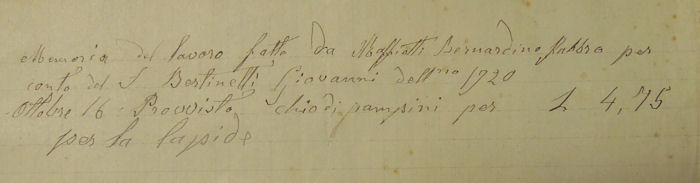 Memoria del lavoro fatto da Maffiotti Bernardino fabbro per
conto del S Bertinetti Giovanni dell'mo 1920
Ottobre 16 Provvisto chiodi pampini per L 4,75
per la lapide